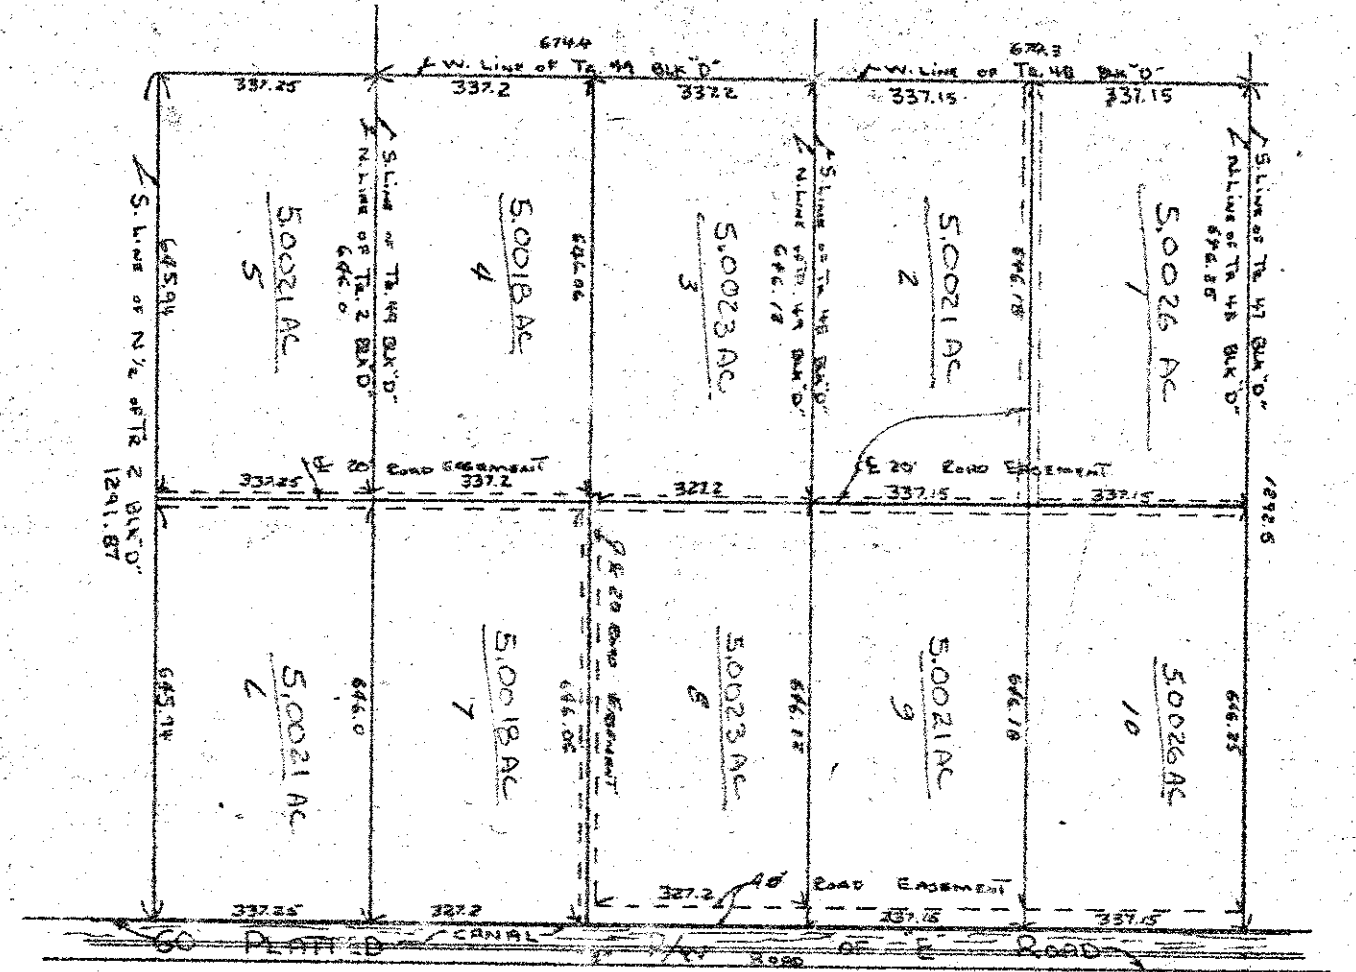 674.4
674.3
W. LINE OF TR. 49 BLK "D"
W. LINE OF TR. 48 BLK "D"
337.25
337.2
337.2
337.15
337.15
S. LINE OF N 1/2 OF TR 2 BLK "D"
1291.87
645.94
5.0021 AC
5
N. LINE OF TR. 2 BLK "D"
646.0
S. LINE OF TR. 49 BLK "D"
5.0018 AC
4
646.06
5.0023 AC
3
N. LINE OF TR. 49 BLK "D"
646.12
S. LINE OF TR 48 BLK "D"
5.0021 AC
2
646.18
5.0026 AC
1
N. LINE OF TR 48 BLK "D"
S. LINE OF TR 47 BLK "D"
1292.5
℄ 20' ROAD EASEMENT
℄ 20' ROAD EASEMENT
337.25
337.2
337.15
337.15
645.94
5.0021 AC
6
646.0
5.0018 AC
7
646.06
℄ 20 ROAD EASEMENT
5.0023 AC
8
646.12
5.0021 AC
9
646.18
5.0026 AC
10
646.25
327.2
40' ROAD EASEMENT
337.25
327.2
337.15
337.15
60' PLATTED
CANAL
R/W OF "E" ROAD